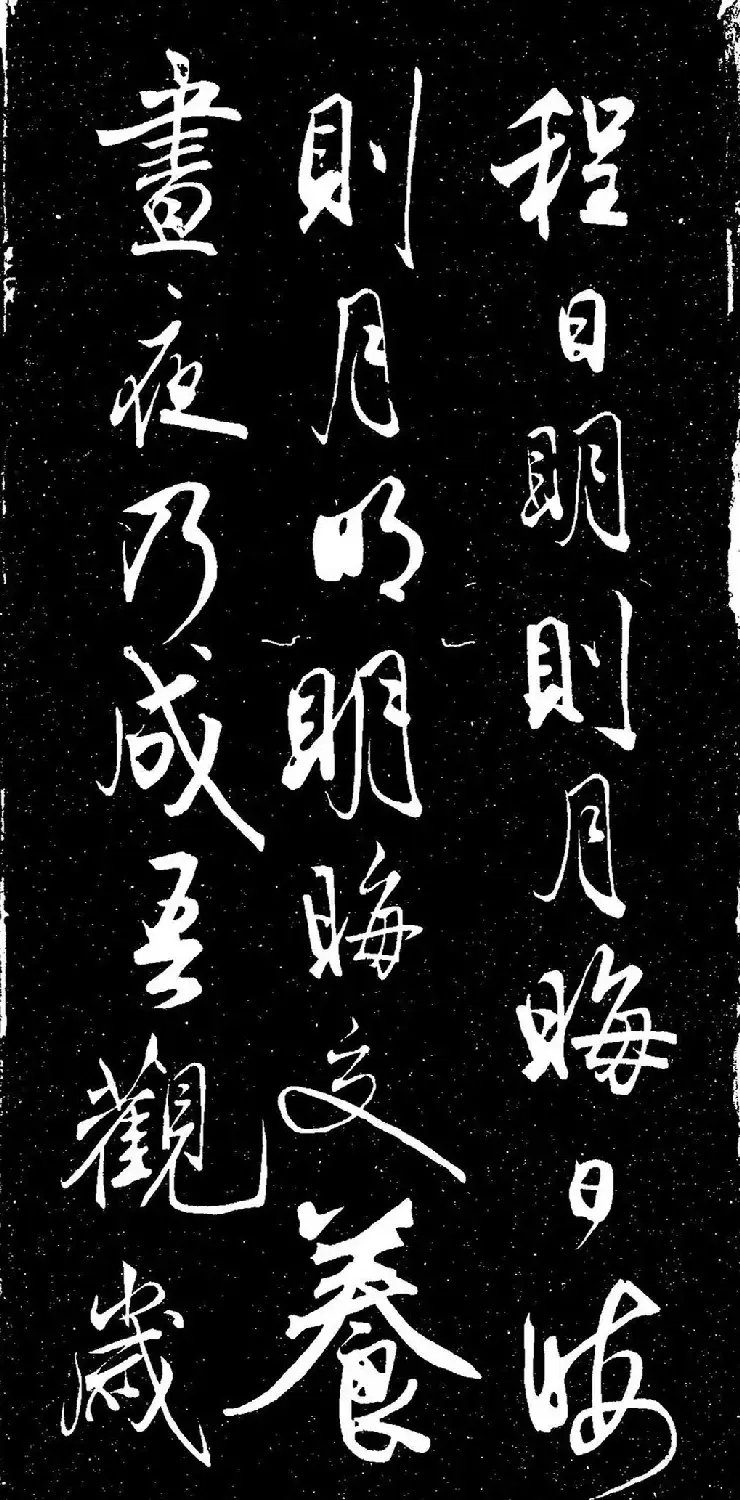 程日明則月晦日晦
則月明明晦交養
晝夜乃成吾觀歲